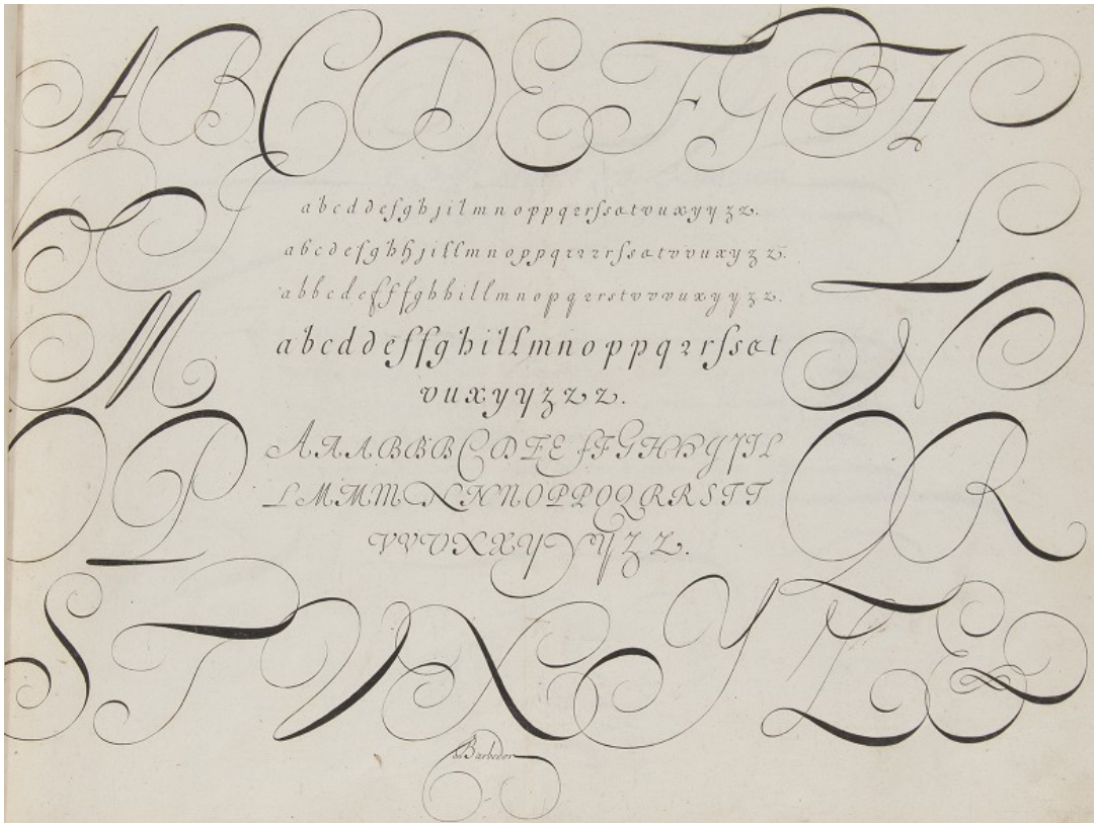 A B C D E F G H
I L
a b c d d e f g h j i l m n o p p q ꝛ r ſ s a t v u x y y z z.
a b c d e f g h h j i l l m n o p p q ꝛ ꝛ ꝛ r ſ s a t v v u x y z z.
a b b c d e f f f g h h i l l m n o p q ꝛ r s t v v v u x y y z z.
M N
a b c d d e f f g h i l l m n o p p q ꝛ r ſ s a t
v u x y y z z z.
O P Q R
A A A B B B C D E E F F G H H J J I L
L M M M N N N O P P O Q R R S T T
V V V X X Y Y Y Z Z.
S T V X Y Z &
Barbedor